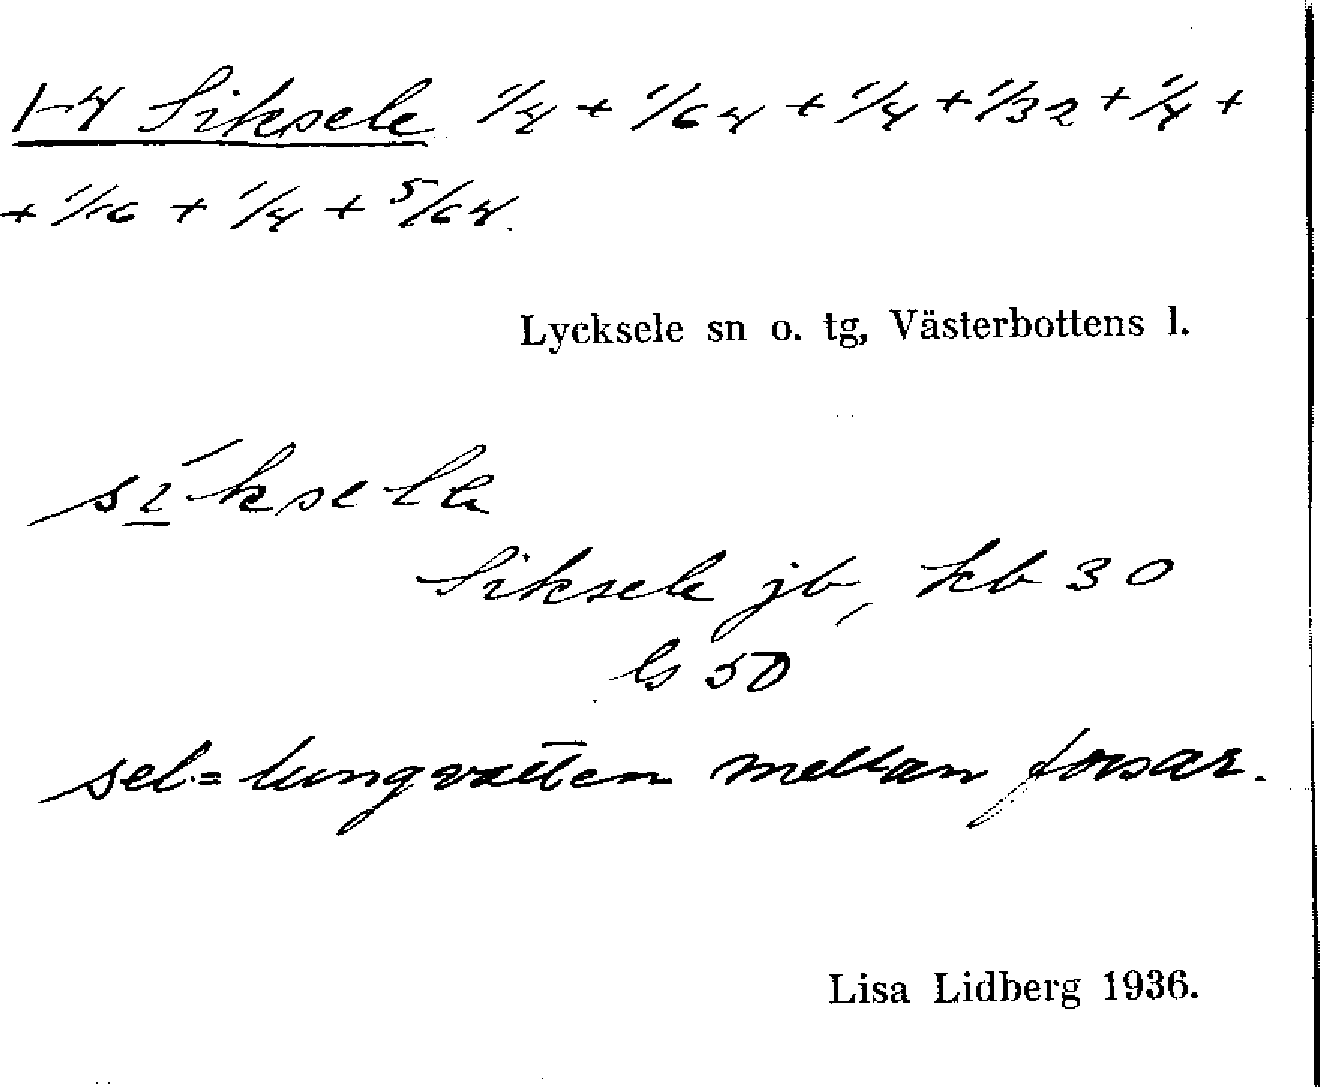 1-4 Siksele 1/4 + 1/64 + 1/4 + 1/32 + 1/4 +
+ 1/16 + 1/4 + 5/64.
Lycksele sn o. tg, Västerbottens l.
síksela
Siksele jb, kb 30
ls 50
sel = lungvatten mellan forsar.
Lisa Lidberg 1936.